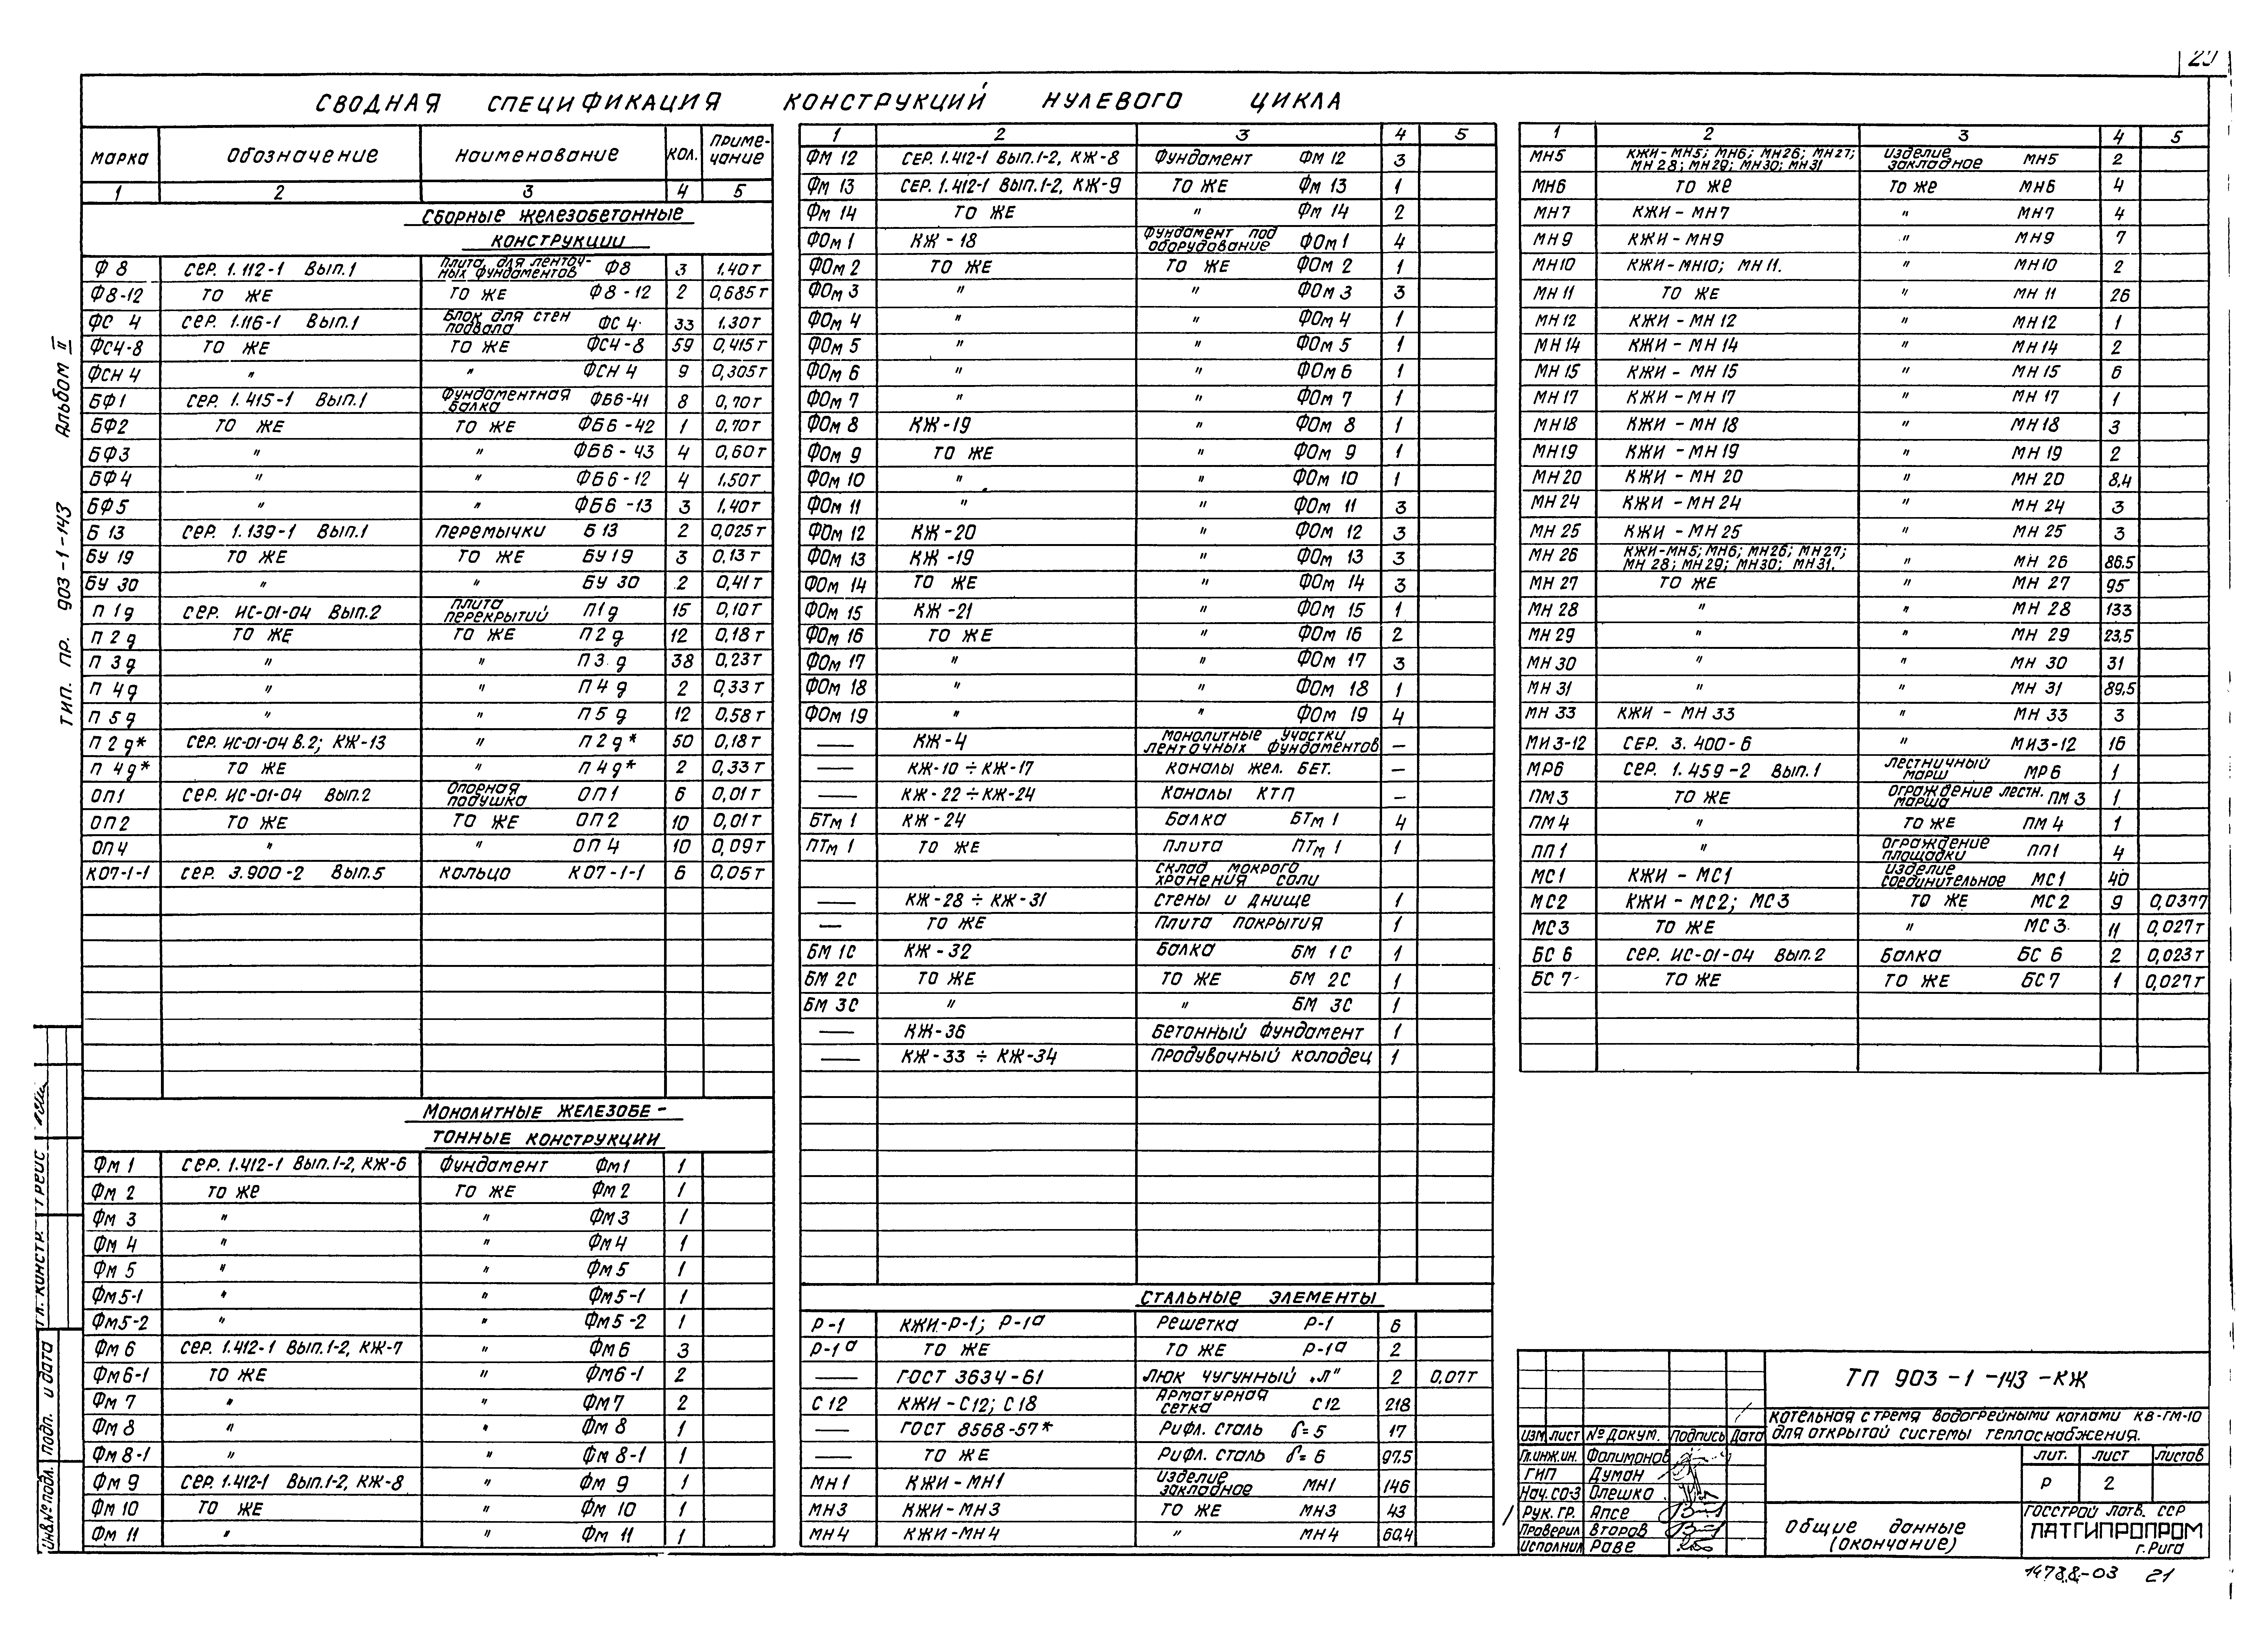 СВОДНАЯ СПЕЦИФИКАЦИЯ КОНСТРУКЦИЙ НУЛЕВОГО ЦИКЛА
Марка Обозначение Наименование Кол. Примечание
1 2 3 4 5
Сборные железобетонные
конструкции
Ф 8 Сер. 1.112-1 Вып.1 Плита для ленточных фундаментов Ф8 3 1,40т
Ф8-12 То же То же Ф8-12 2 0,685т
ФС 4 Сер. 1.116-1 Вып.1 Блок для стен подвала ФС 4 33 1,30т
ФС4-8 То же То же ФС4-8 59 0,415т
ФСН 4 " " ФСН 4 9 0,305т
БФ1 Сер. 1.415-1 Вып.1 Фундаментная балка ФБ6-41 8 0,70т
БФ2 То же То же ФБ6-42 1 0,70т
БФ3 " " ФБ6-43 4 0,60т
БФ4 " " ФБ6-12 4 1,50т
БФ5 " " ФБ6-13 3 1,40т
Б 13 Сер. 1.139-1 Вып.1 Перемычки Б 13 2 0,025т
БУ 19 То же То же БУ 19 3 0,13т
БУ 30 " " БУ 30 2 0,41т
П 1д Сер. ИС-01-04 Вып.2 Плита перекрытий П1д 15 0,10т
П 2д То же То же П2д 12 0,18т
П 3д " " П3д 38 0,23т
П 4д " " П4д 2 0,33т
П 5д " " П5д 12 0,58т
П 2д* Сер. ИС-01-04 В.2; КЖ-13 " П2д* 50 0,18т
П 4д* То же " П4д* 2 0,33т
ОП1 Сер. ИС-01-04 Вып.2 Опорная подушка ОП1 6 0,01т
ОП2 То же То же ОП2 10 0,01т
ОП4 " " ОП4 10 0,09т
К07-1-1 Сер. 3.900-2 Вып.5 Кольцо К07-1-1 6 0,05т
Монолитные железобе-
тонные конструкции
Фм 1 Сер. 1.412-1 Вып.1-2, КЖ-6 Фундамент Фм1 1
Фм 2 То же То же Фм2 1
Фм 3 " " Фм3 1
Фм 4 " " Фм4 1
Фм 5 " " Фм5 1
Фм5-1 " " Фм5-1 1
Фм5-2 " " Фм5-2 1
Фм 6 Сер. 1.412-1 Вып.1-2, КЖ-7 " Фм6 3
Фм6-1 То же " Фм6-1 2
Фм 7 " " Фм7 2
Фм 8 " " Фм 8 1
Фм 8-1 " " Фм 8-1 1
Фм 9 Сер. 1.412-1 Вып.1-2, КЖ-8 " Фм 9 1
Фм 10 То же " Фм 10 1
Фм 11 " " Фм 11 1
1 2 3 4 5
Фм 12 Сер. 1.412-1 Вып.1-2, КЖ-8 Фундамент Фм 12 3
Фм 13 Сер. 1.412-1 Вып.1-2, КЖ-9 То же Фм 13 1
Фм 14 То же " Фм 14 2
ФОм 1 КЖ-18 Фундамент под оборудование ФОм 1 4
ФОм 2 То же То же ФОм 2 1
ФОм 3 " " ФОм 3 3
ФОм 4 " " ФОм 4 1
ФОм 5 " " ФОм 5 1
ФОм 6 " " ФОм 6 1
ФОм 7 " " ФОм 7 1
ФОм 8 КЖ-19 " ФОм 8 1
ФОм 9 То же " ФОм 9 1
ФОм 10 " " ФОм 10 1
ФОм 11 " " ФОм 11 3
ФОм 12 КЖ-20 " ФОм 12 3
ФОм 13 КЖ-19 " ФОм 13 3
ФОм 14 То же " ФОм 14 3
ФОм 15 КЖ-21 " ФОм 15 1
ФОм 16 То же " ФОм 16 2
ФОм 17 " " ФОм 17 3
ФОм 18 " " ФОм 18 1
ФОм 19 " " ФОм 19 4
— КЖ-4 Монолитные участки ленточных фундаментов —
— КЖ-10 ÷ КЖ-17 Каналы жел. бет. —
— КЖ-22 ÷ КЖ-24 Каналы КТП —
БТм 1 КЖ-24 Балка БТм 1 4
ПТм 1 То же Плита ПТм 1 1
Склад мокрого хранения соли
— КЖ-28 ÷ КЖ-31 Стены и днище 1
— То же Плита покрытия 1
БМ 1С КЖ-32 Балка БМ 1С 1
БМ 2С То же То же БМ 2С 1
БМ 3С " " БМ 3С 1
— КЖ-36 Бетонный фундамент 1
— КЖ-33 ÷ КЖ-34 Продувочный колодец 1
Стальные элементы
Р-1 КЖИ-Р-1; Р-1а Решетка Р-1 6
Р-1а То же То же Р-1а 2
— ГОСТ 3634-61 Люк чугунный „Л" 2 0,07т
С 12 КЖИ-С12; С18 Арматурная сетка С12 218
— ГОСТ 8568-57* Рифл. сталь δ=5 17
— То же Рифл. сталь δ=6 97,5
МН1 КЖИ-МН1 Изделие закладное МН1 146
МН3 КЖИ-МН3 То же МН3 43
МН4 КЖИ-МН4 " МН4 60,4
1 2 3 4 5
МН5 КЖИ-МН5; МН6; МН26; МН27; МН28; МН29; МН30; МН31 Изделие закладное МН5 2
МН6 То же То же МН6 4
МН7 КЖИ-МН7 " МН7 4
МН9 КЖИ-МН9 " МН9 7
МН10 КЖИ-МН10; МН11. " МН10 2
МН11 То же " МН11 26
МН12 КЖИ-МН12 " МН12 1
МН14 КЖИ-МН14 " МН14 2
МН15 КЖИ-МН15 " МН15 6
МН17 КЖИ-МН17 " МН17 1
МН18 КЖИ-МН18 " МН18 3
МН19 КЖИ-МН19 " МН19 2
МН20 КЖИ-МН20 " МН20 8,4
МН24 КЖИ-МН24 " МН24 3
МН25 КЖИ-МН25 " МН25 3
МН26 КЖИ-МН5; МН6; МН26; МН27; МН28; МН29; МН30; МН31. " МН26 86,5
МН27 То же " МН27 95
МН28 " " МН28 133
МН29 " " МН29 23,5
МН30 " " МН30 31
МН31 " " МН31 89,5
МН33 КЖИ-МН33 " МН33 3
МИ3-12 Сер. 3.400-6 " МИ3-12 16
МР6 Сер. 1.459-2 Вып.1 Лестничный марш МР6 1
ПМ3 То же Ограждение лестн. марша ПМ3 1
ПМ4 " То же ПМ4 1
ПП1 " Ограждение площадки ПП1 4
МС1 КЖИ-МС1 Изделие соединительное МС1 40
МС2 КЖИ-МС2; МС3 То же МС2 9 0,037т
МС3 То же " МС3 11 0,027т
БС 6 Сер. ИС-01-04 Вып.2 Балка БС 6 2 0,023т
БС 7 То же То же БС7 1 0,027т
ТП 903-1-143-КЖ
Котельная с тремя водогрейными котлами КВ-ГМ-10
для открытой системы теплоснабжения.
Изм. Лист № докум. Подпись Дата
Гл.инж.ин. Фалимонов
ГИП Думан
Нач. СО-3 Олешко
Рук. гр. Апсе
Проверил Второв
Исполнил Раве
Лит. Лист Листов
Р 2
Общие данные
(окончание)
Госстрой Латв. ССР
ЛАТГИПРОПРОМ
г. Рига
14788-03 21
Тип. пр. 903-1-143 Альбом II
Гл. констр. Грейс
Инв.№ подл. Подп. и дата